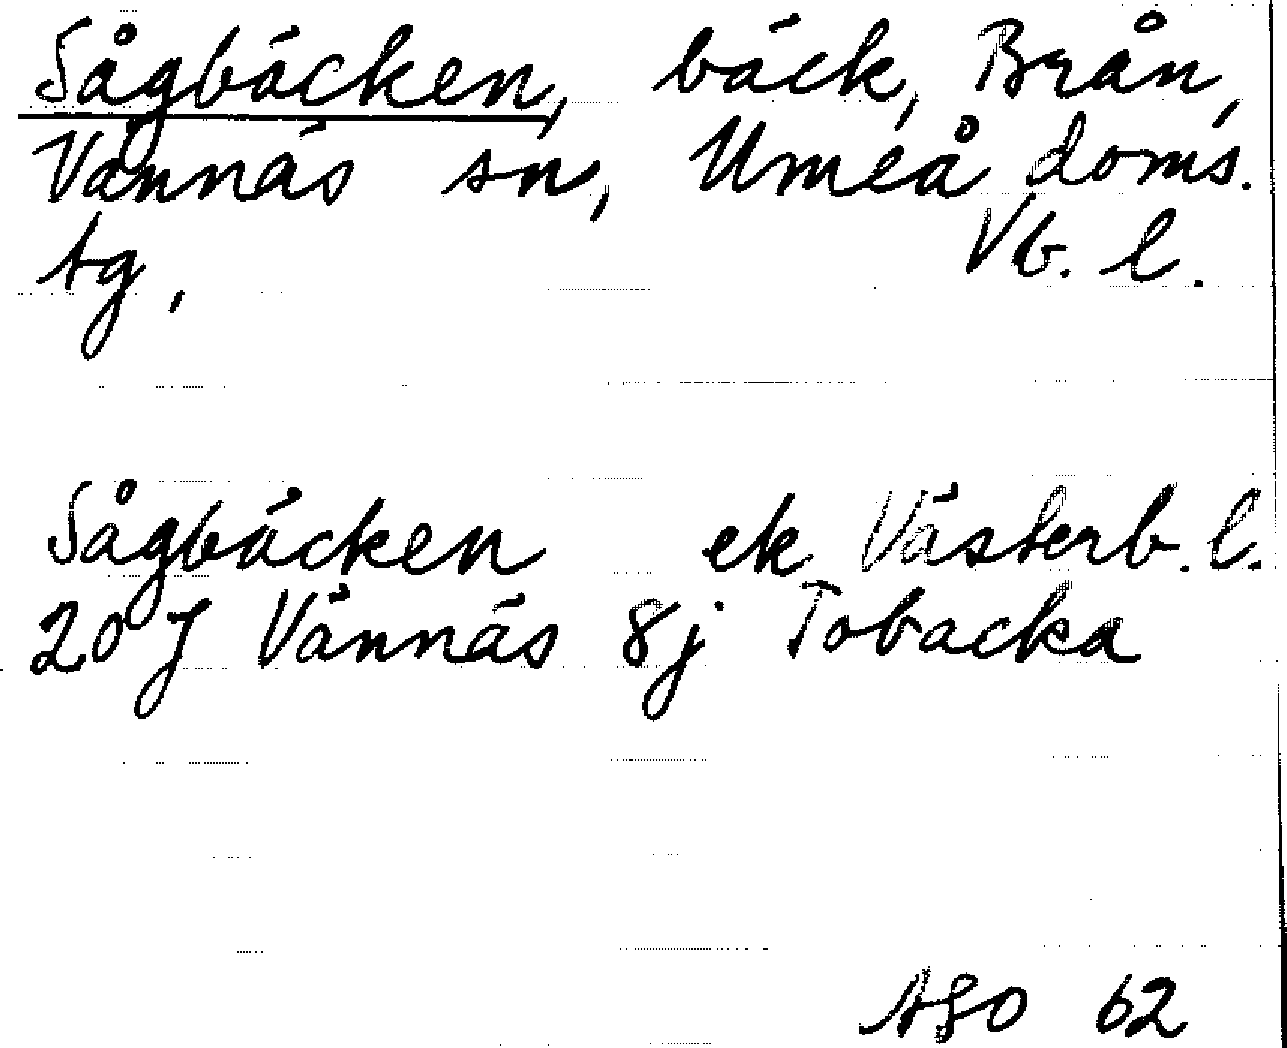 Sågbäcken, bäck, Brån,
Vännäs sn, Umeå doms.
tg, Vb. l.
Sågbäcken ek Västerb. l.
20 J Vännäs 8j Tobacka
62